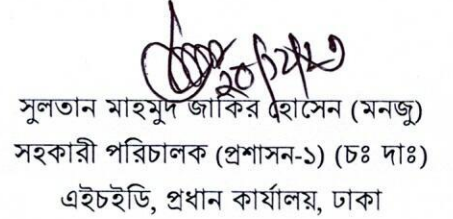 সুলতান মাহমুদ জাকির হোসেন (মনজু)
সহকারী পরিচালক (প্রশাসন-১) (চঃ দাঃ)
এইচইডি, প্রধান কার্যালয়, ঢাকা